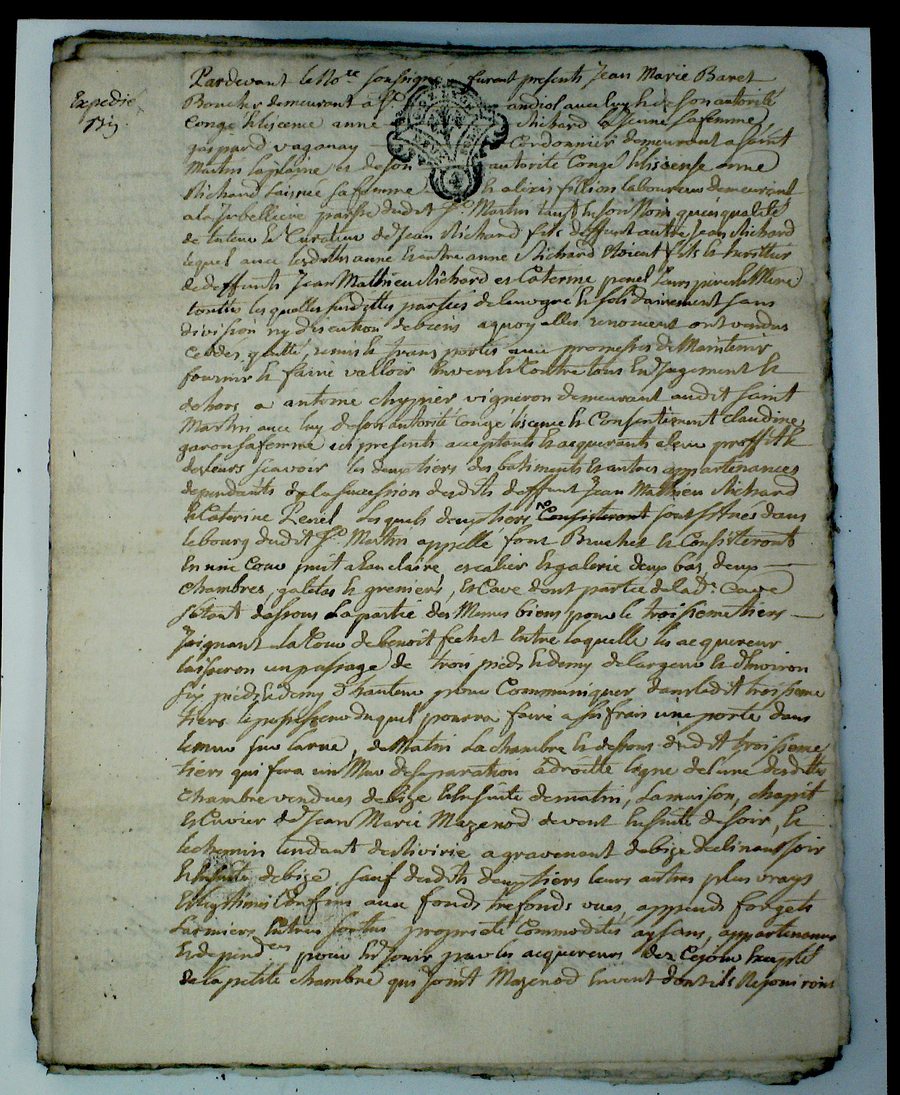 Expedié
Pardevant le No.re soussigné furent presents Jean Marie Baret
Boucher demeurant a St andiol avec luy & de son autorité
Congé & liscence anne Richard la jeune sa femme,
gaspard vaganay Cordonnier demeurant a saint
Martin laplaine et de son autorité Congé & liscense anne
Richard lainée sa femme & alexis fillion laboureur demeurant
a la Jubelliere parsse dudit St Martin tant en son Nom qu'en qualité
de tuteur & Curateur de Jean Richard fils deffunt autre Jean Richard
lequel avec lesdittes anne & autre anne Richard etoient fils & heritiers
de deffunts Jean Mathieu Richard et Caterine penel leurs pere & Mere
touttes lesquelles susdittes parties de leur gré & solidairement sans
division ny discution de biens a quoy elles renoncent ont vendus
Ceddés, quitté, remis & transportés avec promesses de Maintenir
fournir & faire valloir envers & Contre tous en Jugement &
dehors a antoine chypier vigneron demeurant audit saint
Martin avec luy de son autorité congé liscence & Consentement Claudine
garon sa femme icy presents acceptants & acquerants a leur proffit &
des leurs scavoir les deux tiers des batiments & autres appartenances
dependants de la succession desdits deffunt Jean Mathieu Richard
& Caterine Penel Lesquels deux tiers Consisteront sont situés dans
le bourg dudit St Martin appellé font Bruchet & Consisteront
en une Cour puit a Eau claire escalier & galerie deux bas, deux
chambres, galetas & greniers, et Cave dont partie de lad.e Cave
s'etant dessous La partie des Memes biens pour le troisieme tiers
Joignant a la Cour de benoit fechet entre laquelle les acquereur
laisseron un passage de trois pieds & demy de largeur & d'environ
six pieds & demy d'hauteur pour Communiquer dans ledit troisieme
tiers le possesseur duquel pourra faire a ses frais une porte dans
le mur sur la rue, de Matin La chambre & dessous dudit troisieme
tiers qui fera un Mur de separation a droitte ligne de l'une desdittes
Chambre vendues de bize & ensuitte de matin, La maison, chapit
et Cuvier de Jean Marie Mazenod de vent ensuitte de soir, &
le chemin tendant de Rivirie a gravenant de bize declinant soir
& ensuitte de bize sauf desdits deux tiers leurs autres plus vrays
& legitimes Confins avec fonds trefonds vues, appends forgets
Larmiers Entrées sorties proprieté Commodités aysans, appartenances
& depend.ces pour en Jouir par les acquereurs dez Cejour Excepté
de la petite chambre qui Joint Mazenod en vent dont ils ne Jouiront